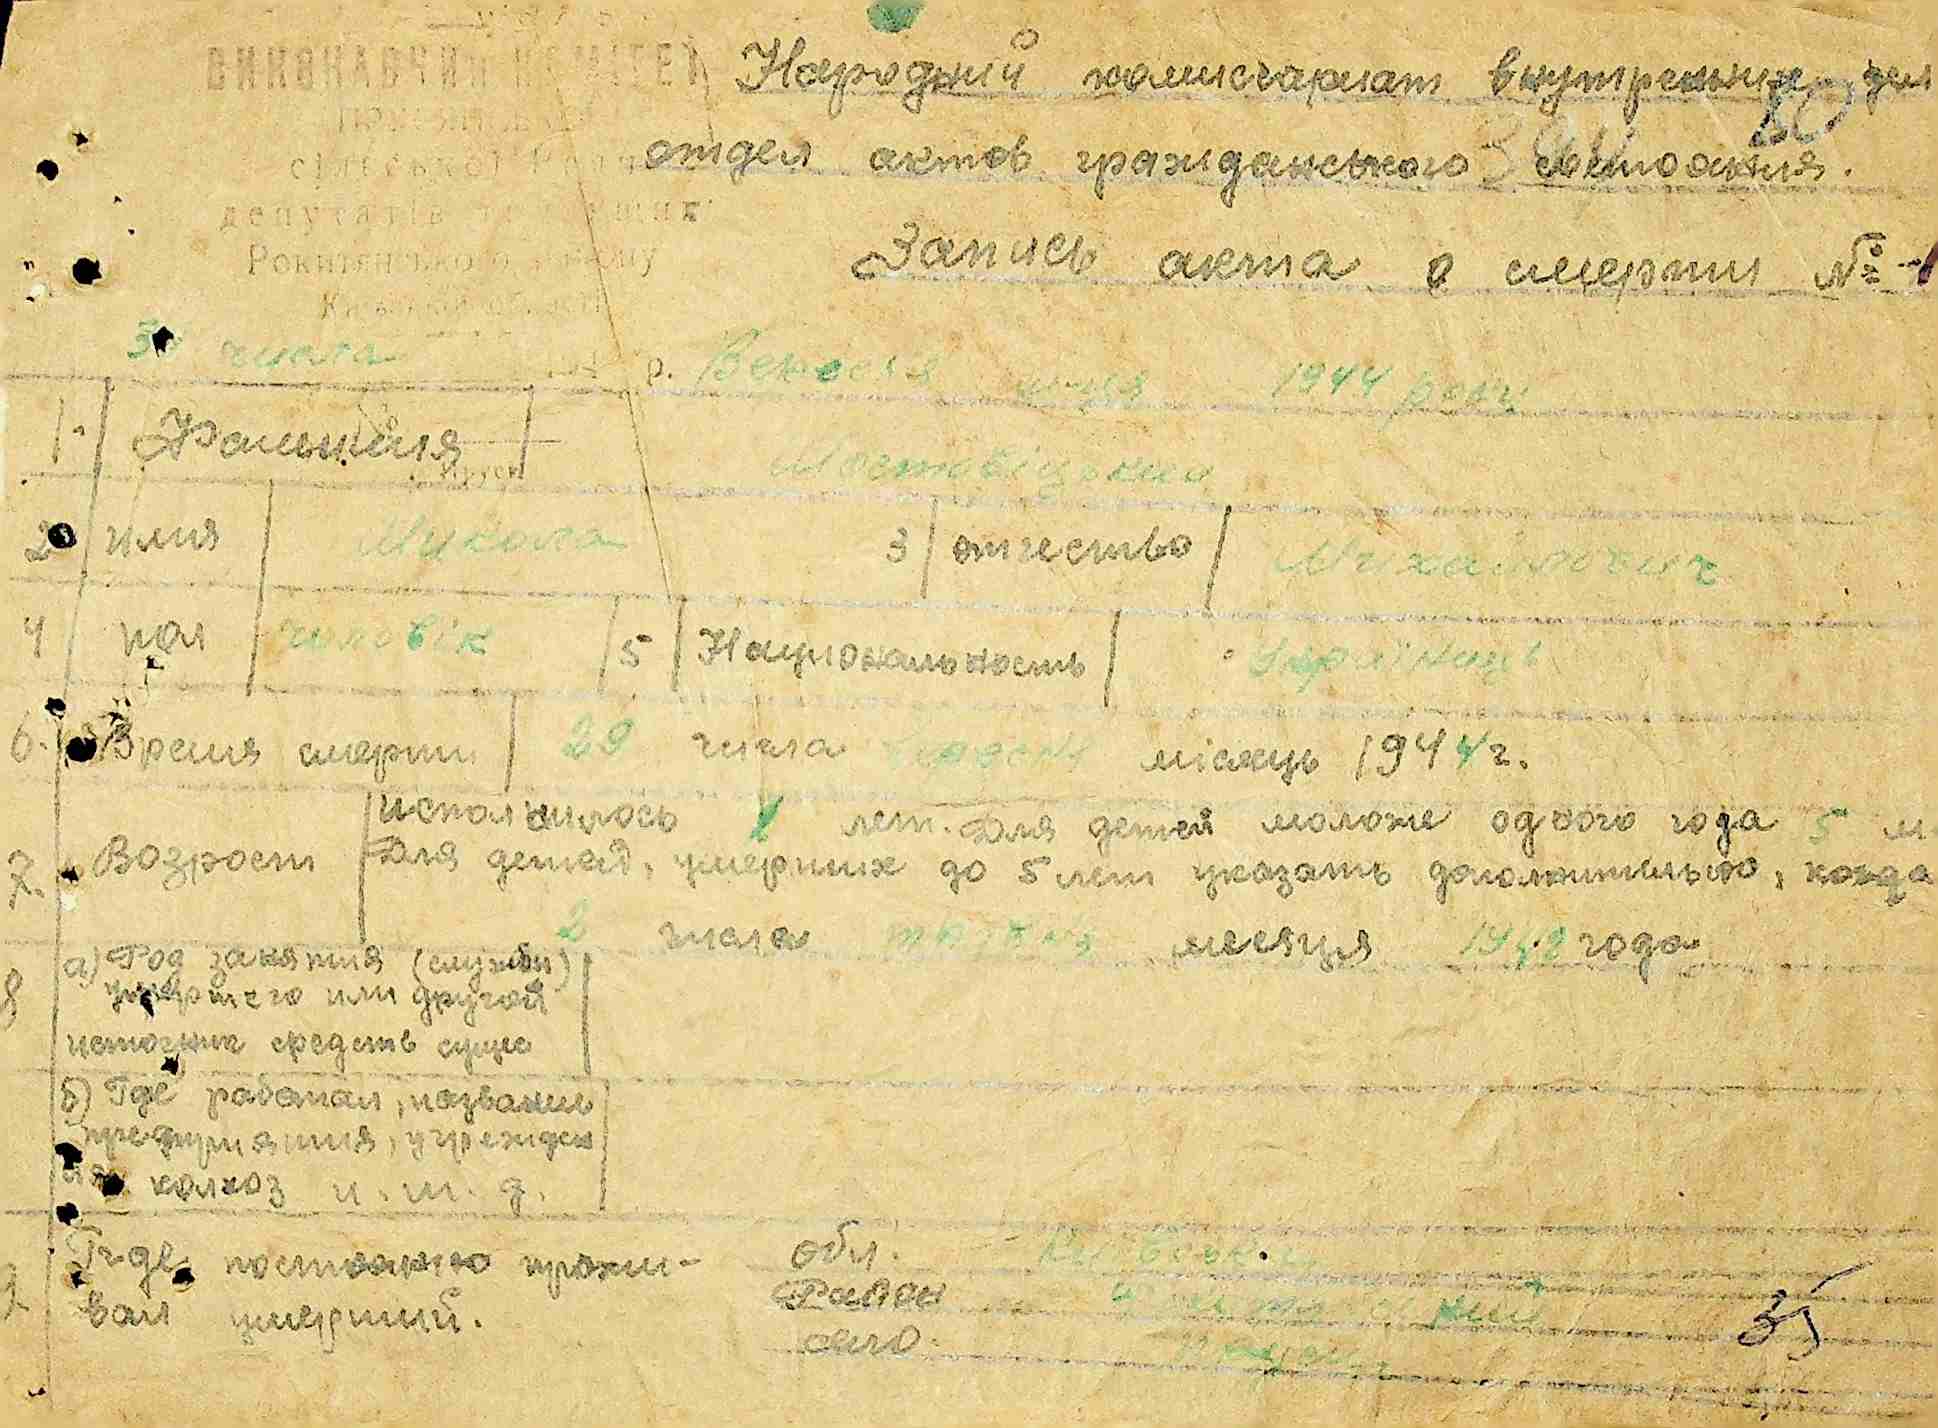 ВИКОНАВЧИЙ КОМІТЕТ
сільської Ради
депутатів трудящих
Рокитянського району
Київської області
Народний комисариат внутренних дел
отдел актов гражданського состояния.
Запись акта о смерти №
30 числа р. Вересня м-ця 1944 року
1. Фамилия
2 имя Микола 3 отчество Михайлович
4 пол чоловік 5 Национальность Українець
6. Время смерти 29 числа вересня місяць 1944 г.
7. Возрост исполнилось 2 лет. Для детей моложе одного года 5 м
Для детей, умерших до 5 лет указать дополнительно, когда
2 числа месяця 1942 года
8 а) Род занятия (служби)
умершего или другой
источник средств суще
б) Где работал, название
предприятия, учрежден
колхоз и. т. д.
Где постоянно прожи-
вал умерший.
обл. Київська
Район
село.
35